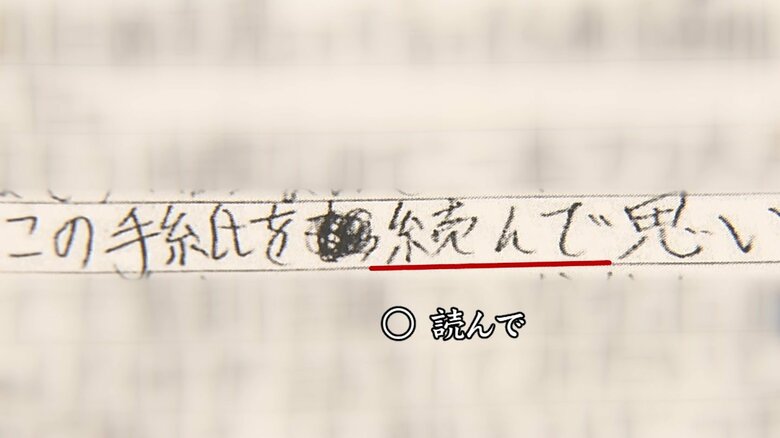 この手紙を続んで思い
◯ 読んで